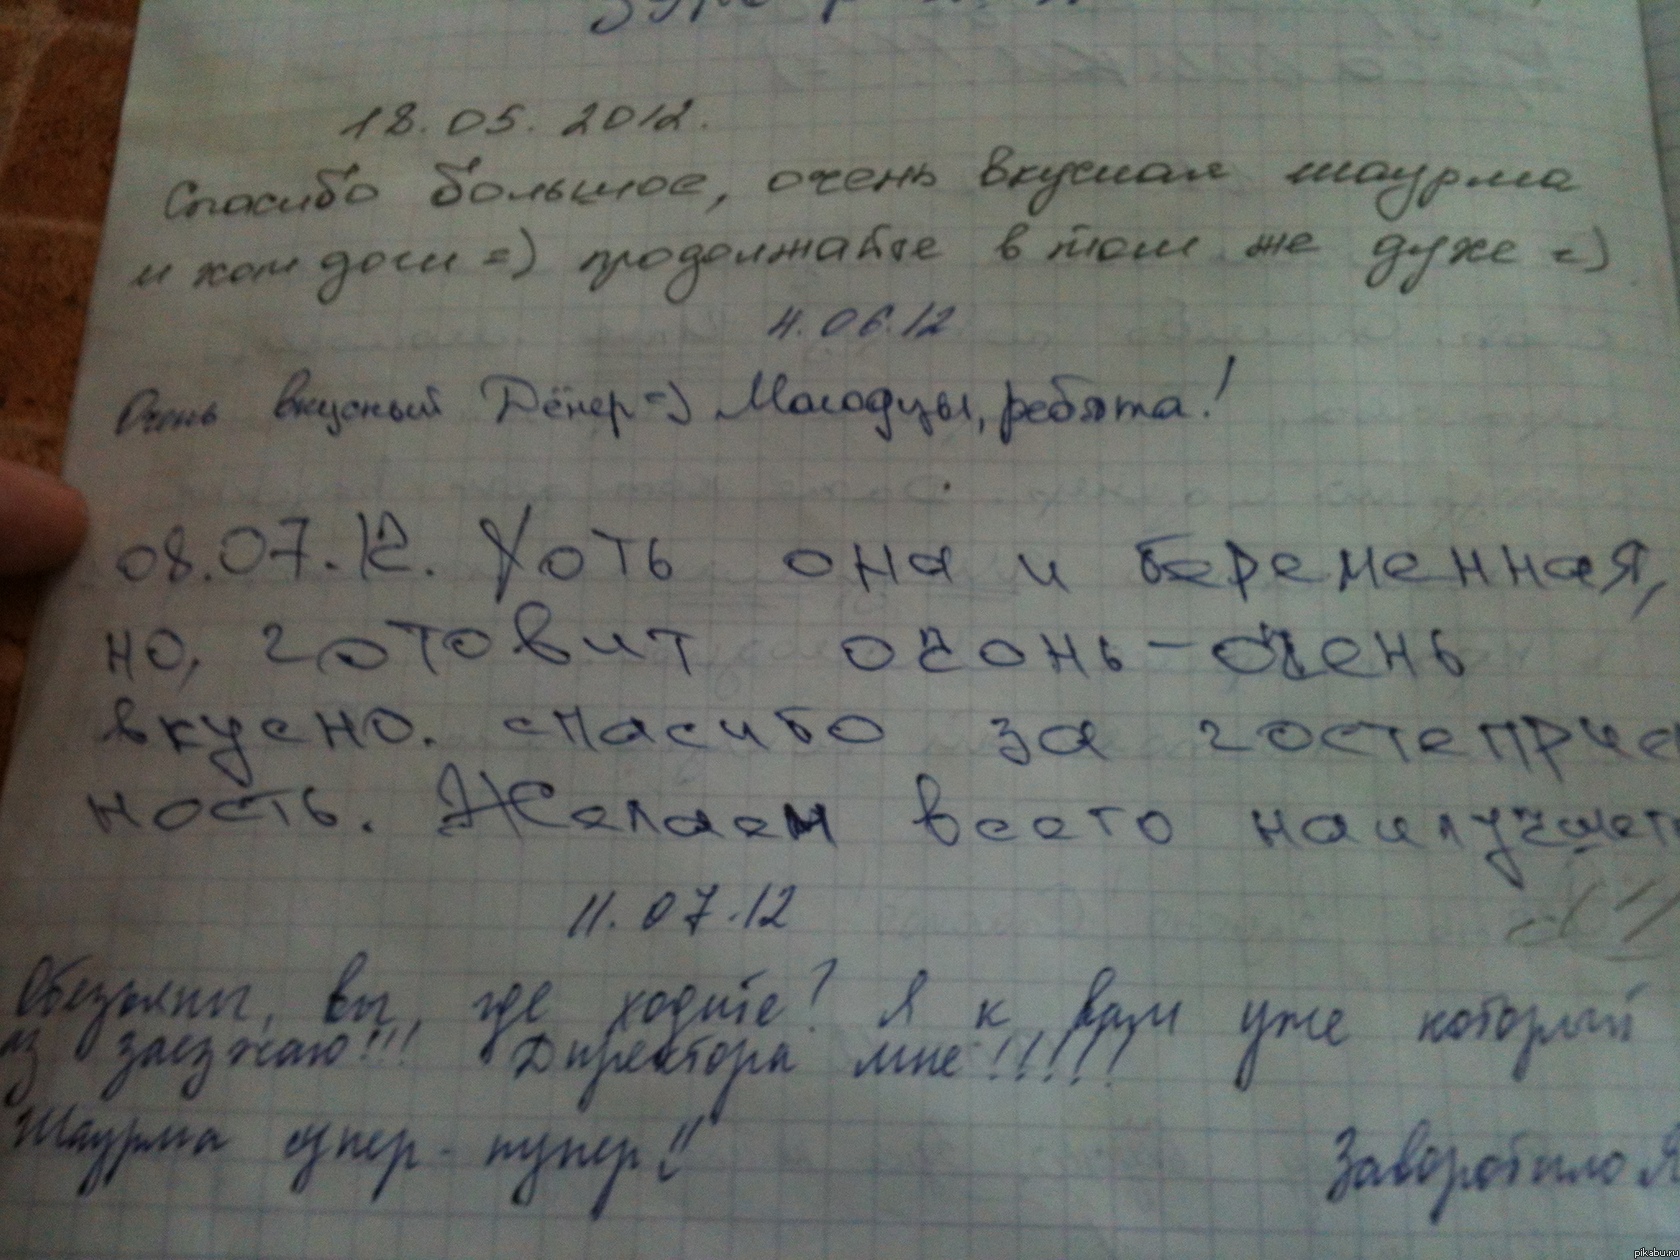 18.05.2012.
Спасибо большое, очень вкусная шаурма
и хот доги =) продолжайте в том же духе =)
4.06.12
Очень вкусный Дёнер =) Молодцы, ребята!
08.07.12. Хоть она и беременная,
но, готовит очонь-очень
вкусно. спасибо за гостеприе
ность. Желаем всего наилучшег
11.07.12
Обезьяны, вы, где ходите? Я к вам уже который
аз заезжаю!!! Директора мне!!!!!
Шаурма супер-пупер!!
Заворотило Я
pikabu.ru